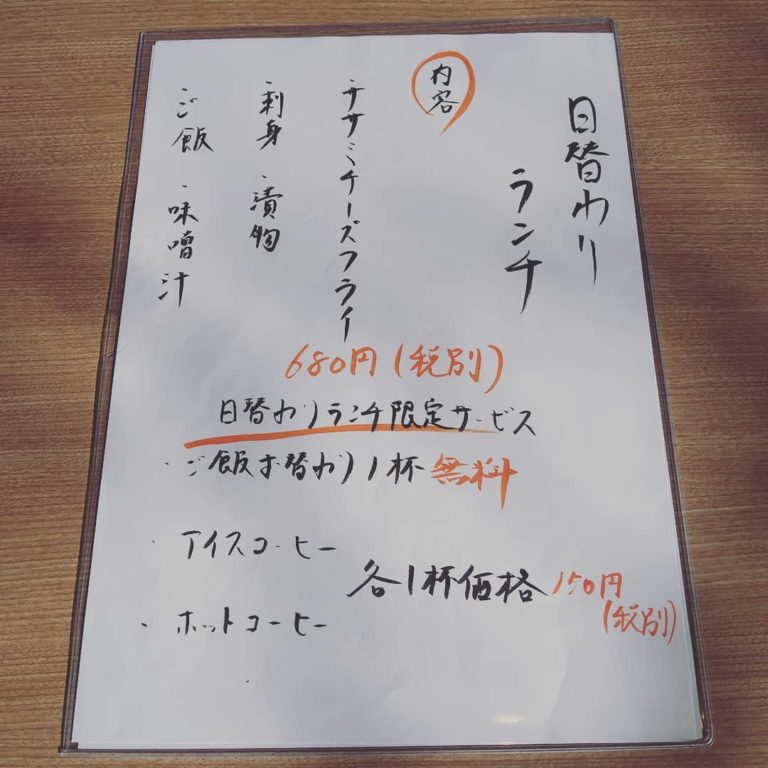 日替わり
ランチ
内容
・ササミチーズフライ
・刺身・漬物
・ご飯・味噌汁
680円(税別)
日替わりランチ限定サービス
・ご飯お替わり1杯無料
・アイスコーヒー
各1杯価格150円
(税別)
・ホットコーヒー